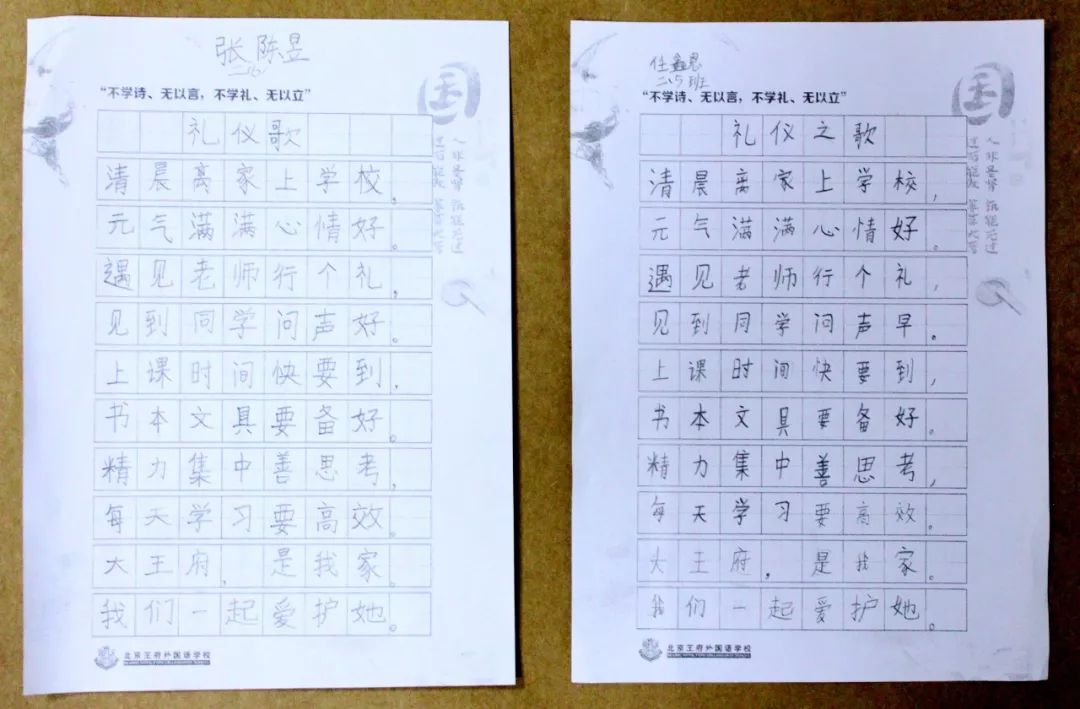 张陈昱
二(6)
“不学诗、无以言，不学礼、无以立”
国
礼仪歌
清晨离家上学校，
元气满满心情好。
遇见老师行个礼，
见到同学问声好。
上课时间快要到，
书本文具要备好。
精力集中善思考，
每天学习要高效。
大王府，是我家。
我们一起爱护她。
北京王府外国语学校
任鑫恩
二.5班
“不学诗、无以言，不学礼、无以立”
国
礼仪之歌
清晨离家上学校，
元气满满心情好。
遇见老师行个礼，
见到同学问声早。
上课时间快要到，
书本文具要备好。
精力集中善思考，
每天学习要高效。
大王府，是我家。
我们一起爱护她。
北京王府外国语学校